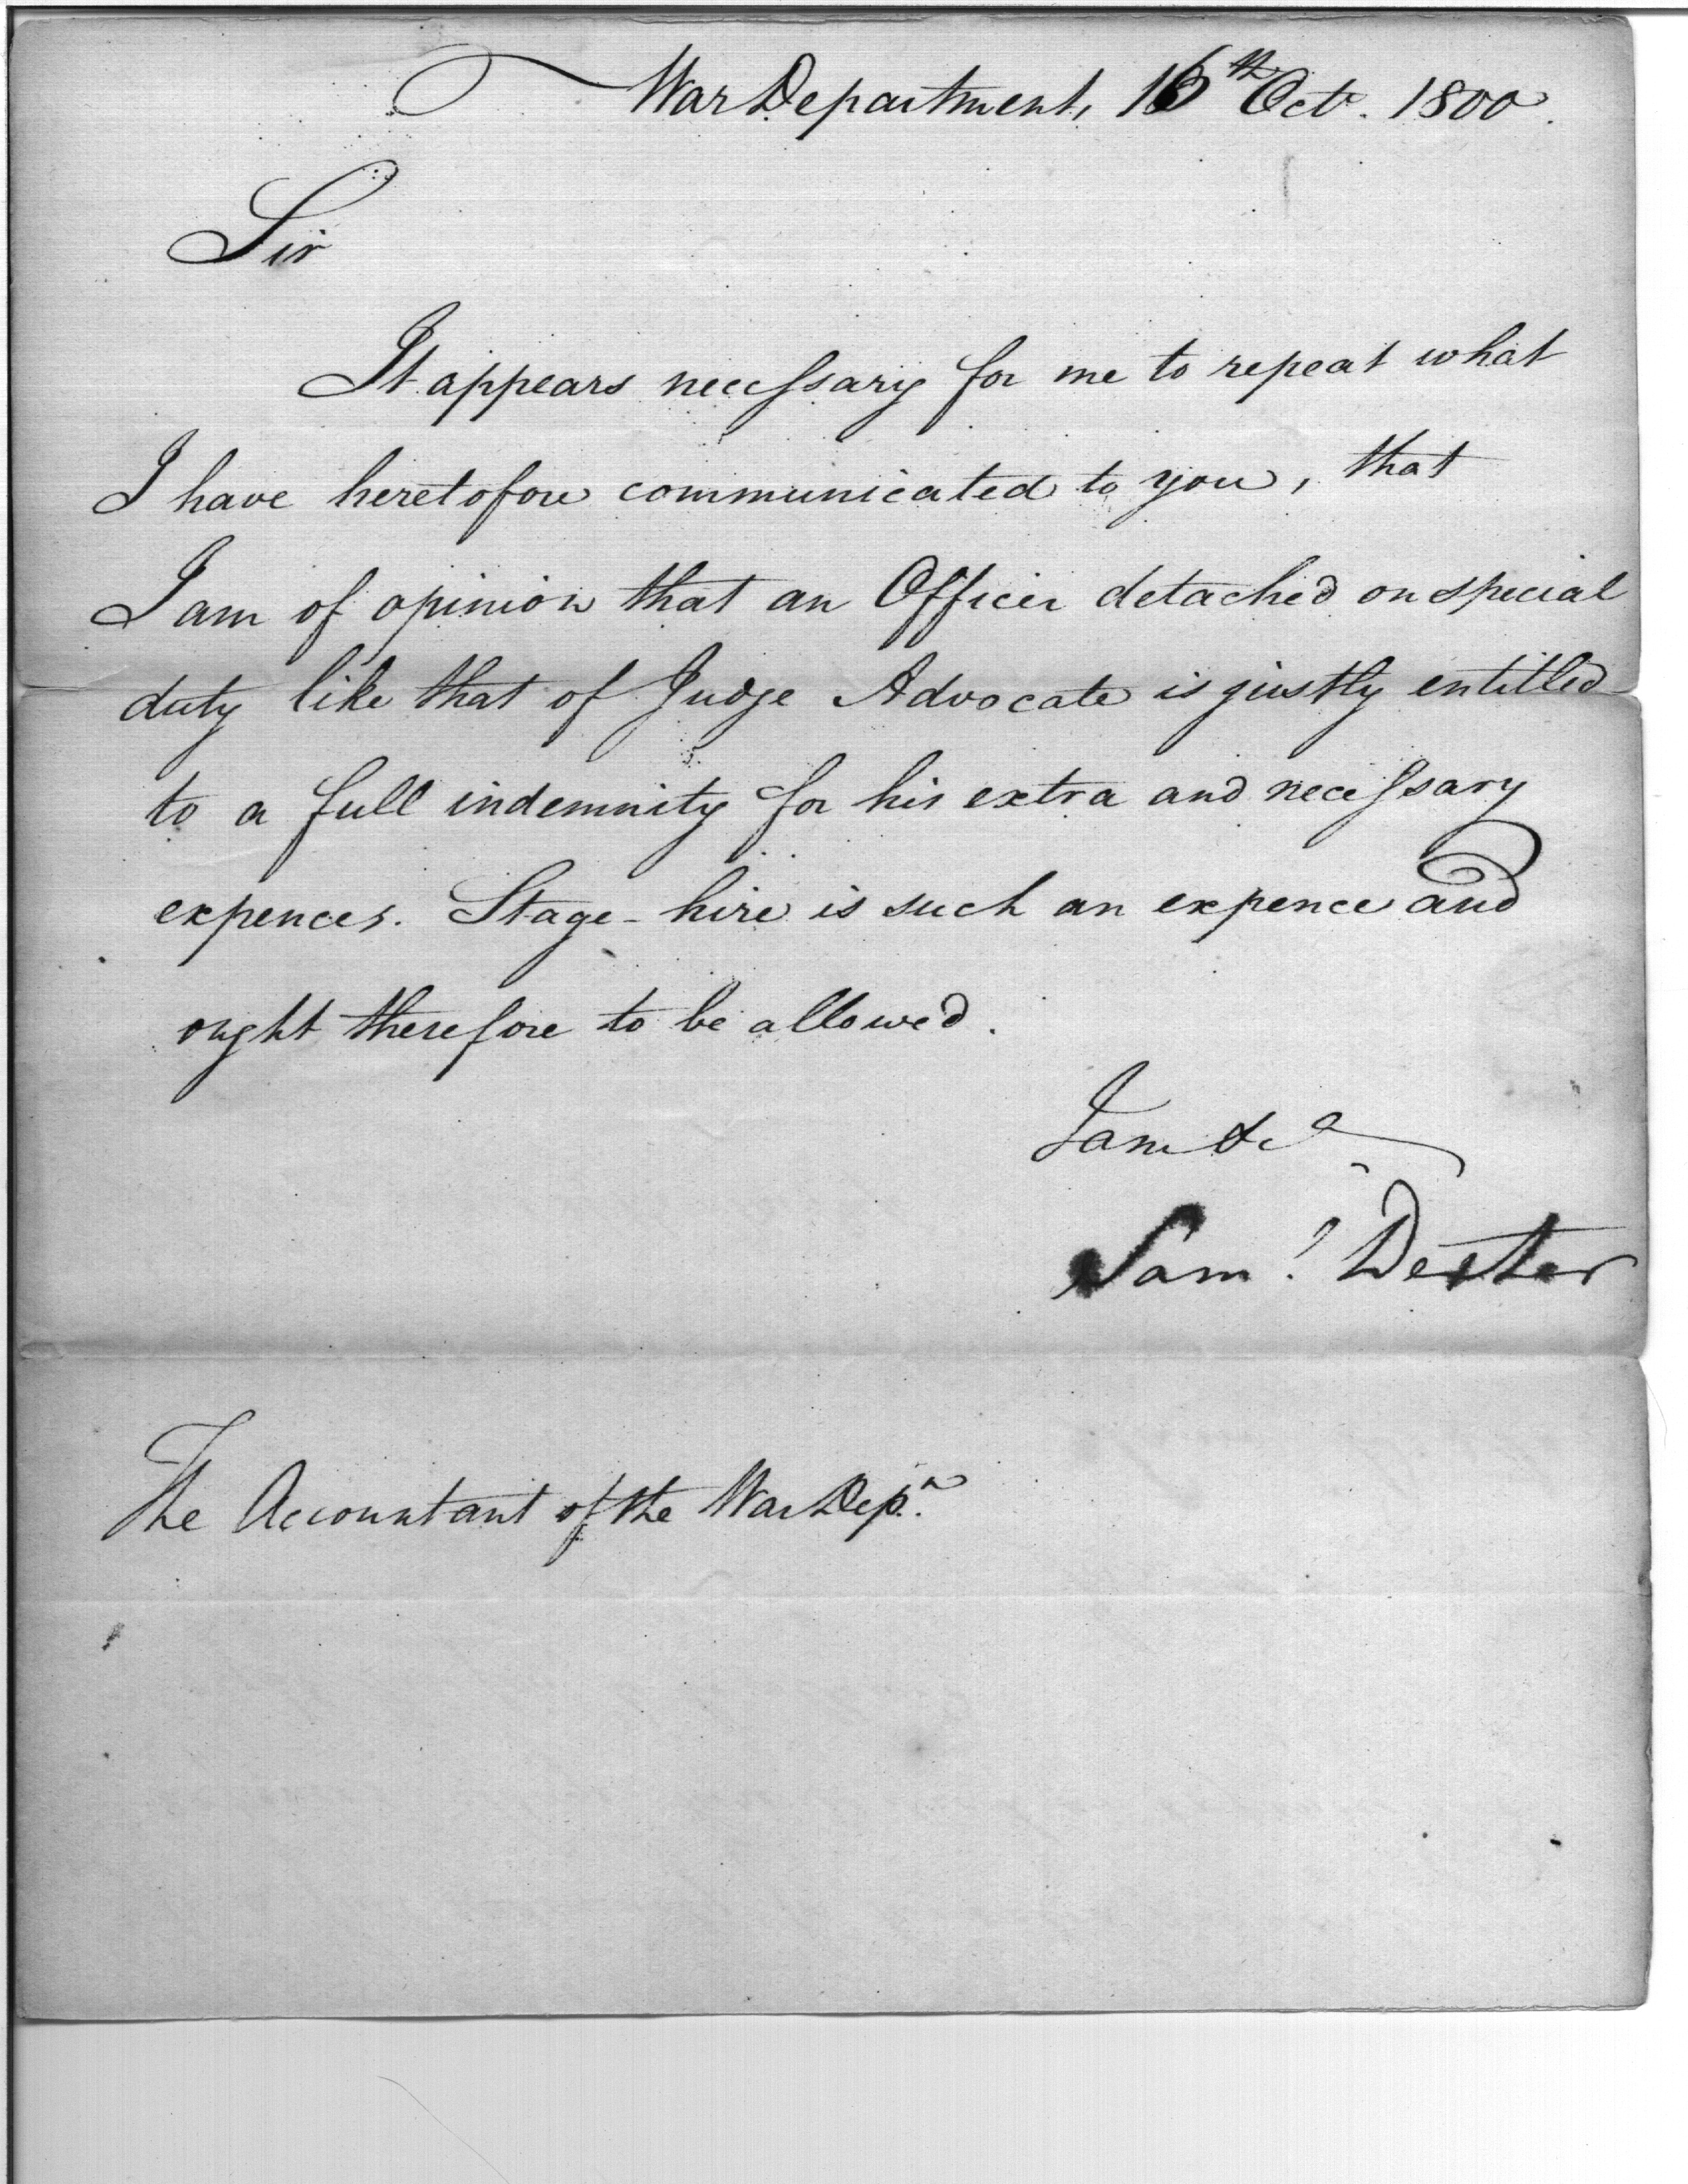 War Department, 16th Oct. 1800.
Sir
It appears necessary for me to repeat what
I have heretofore communicated to you, that
I am of opinion that an Officer detached on special
duty like that of Judge Advocate is justly entitled
to a full indemnity for his extra and necessary
expences. Stage-hire is such an expence and
ought therefore to be allowed.
I am &c
Saml. Dexter
The Accountant of the War Dept.